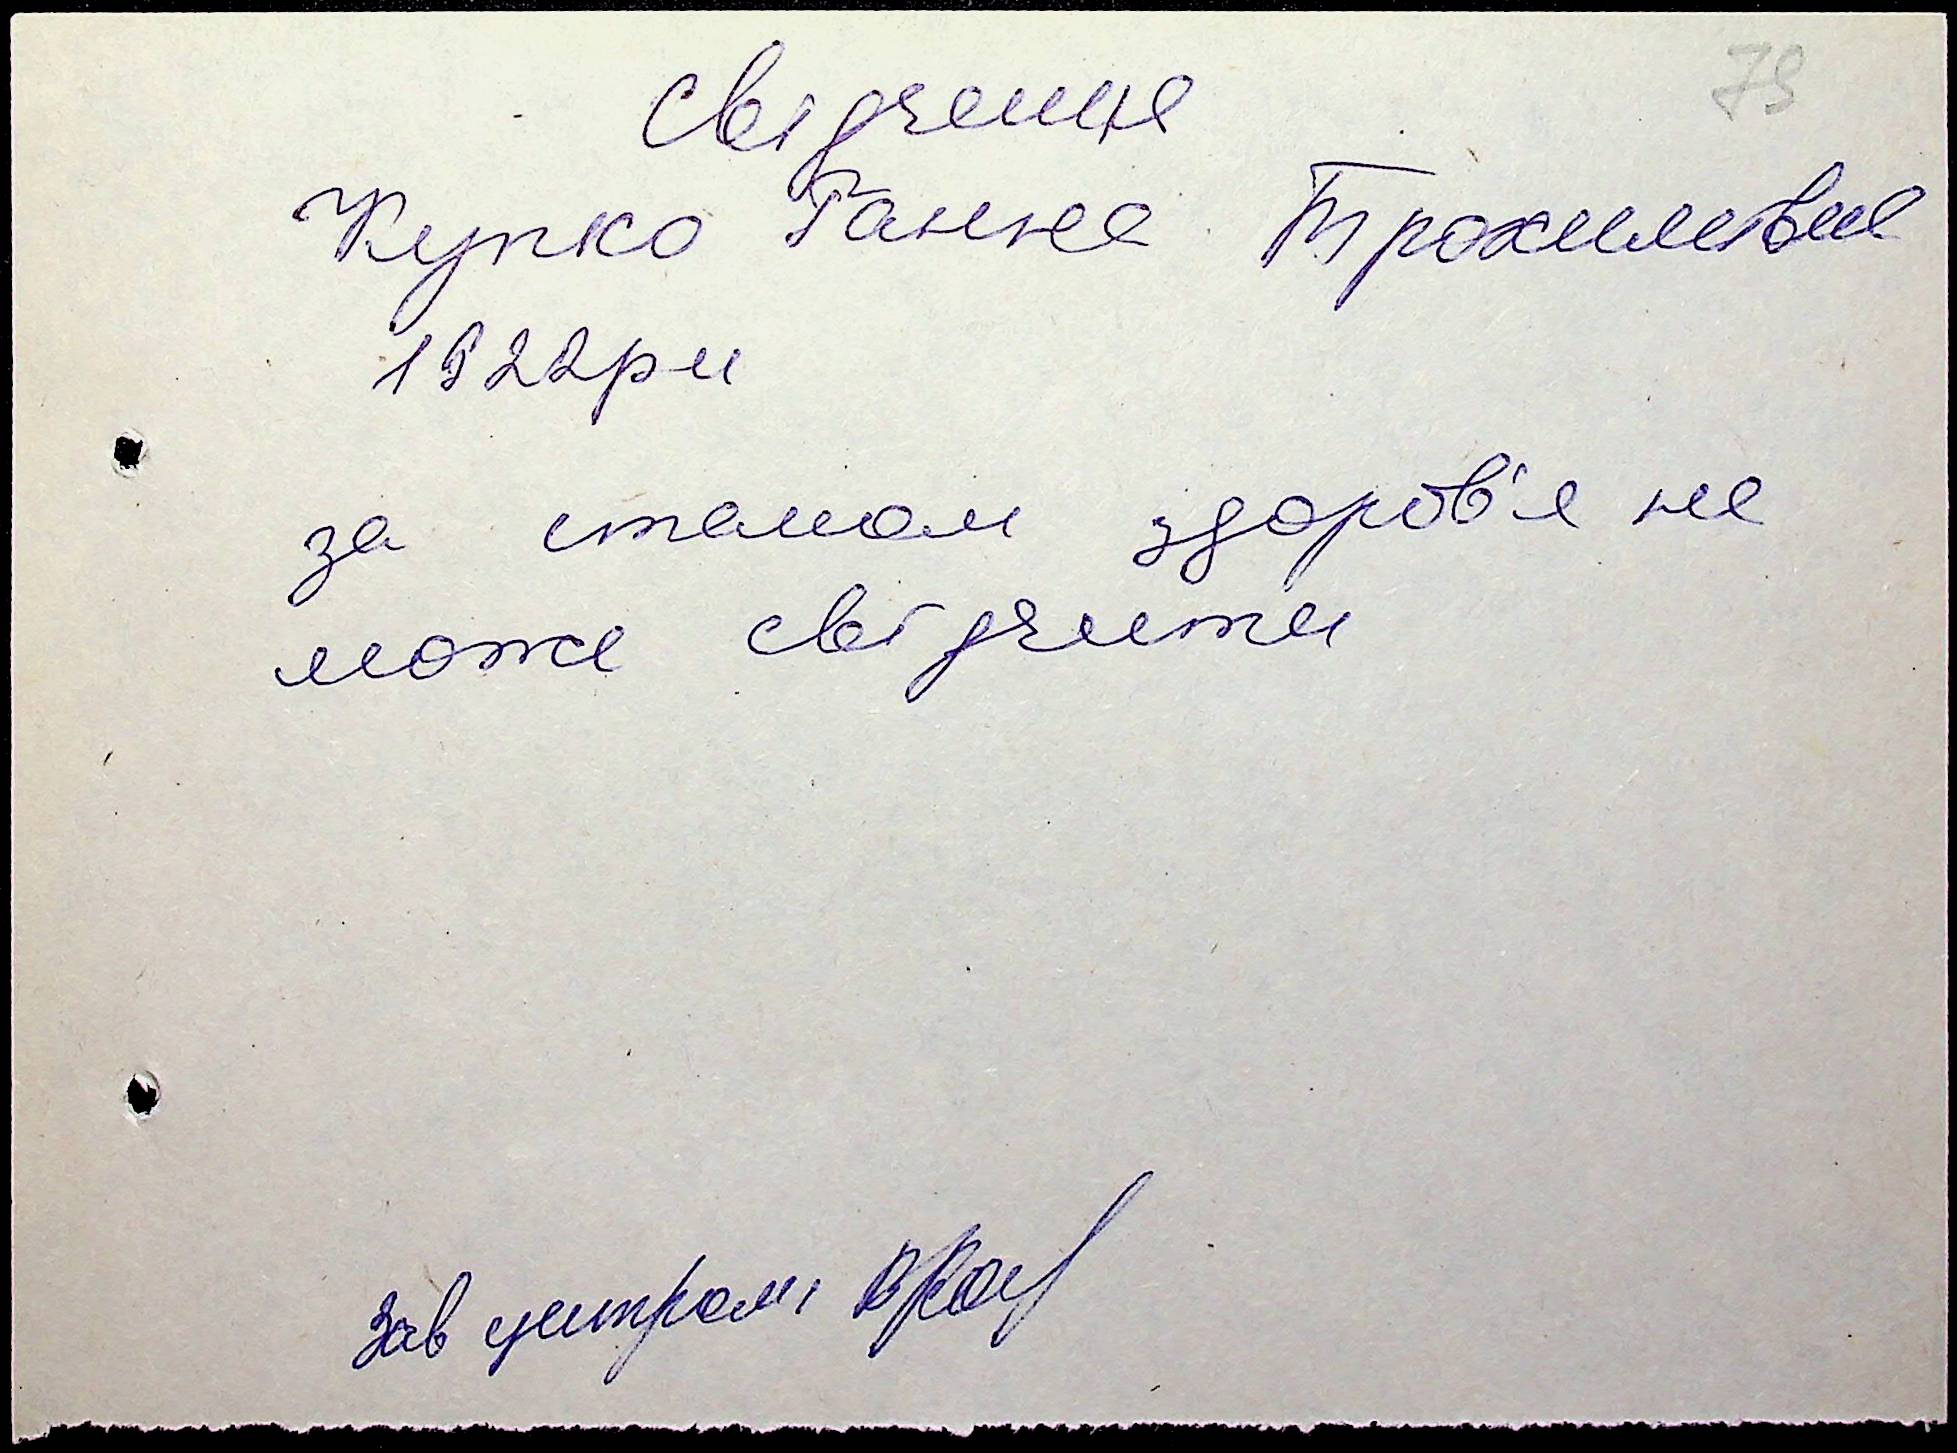 79
Свідчення
Купко Ганна Трохимівна
1922 р н
за станом здоров'я не
може свідчити
Зав центром